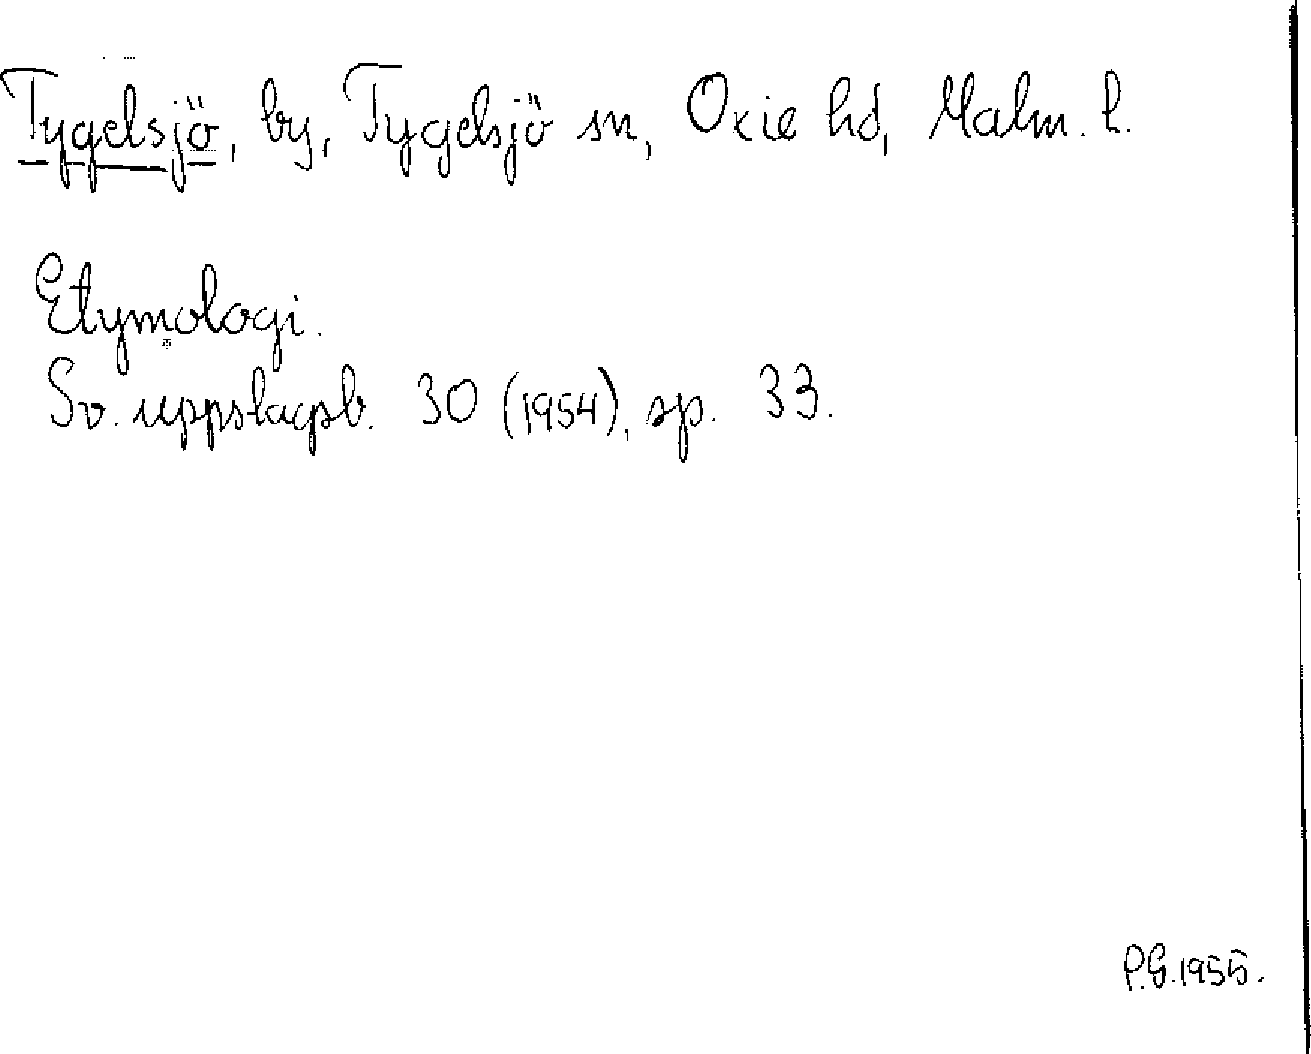 Tygelsjö, by, Tygelsjö sn, Oxie hd, Malm. l.
Etymologi.
Sv. uppslagsb. 30 (1954), sp. 33.
P.G. 1955.